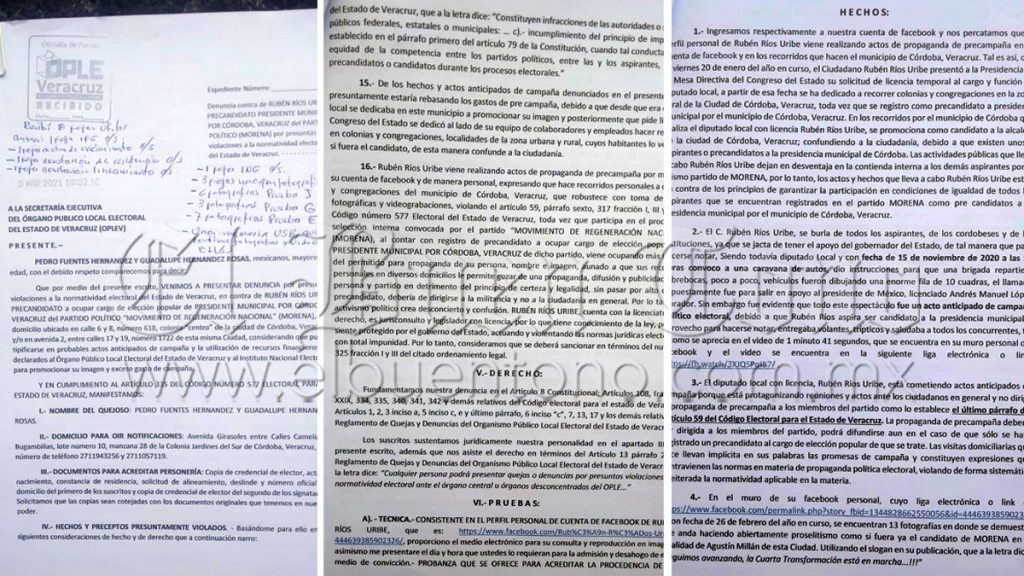 Oficialía de Partes
OPLE
Veracruz
RECIBIDO
2 MAR 2021
Expediente Número:
Denuncia contra de RUBÉN RÍOS URIBE
PRECANDIDATO PRESIDENTE MUNI
POR CÓRDOBA, VERACRUZ DEL PART
POLÍTICO (MORENA) por presuntas
violaciones a la normatividad elector
del Estado de Veracruz.
A LA SECRETARIA EJECUTIVA
DEL ÓRGANO PUBLICO LOCAL ELECTORAL
DEL ESTADO DE VERACRUZ (OPLEV)
PRESENTE.-
PEDRO FUENTES HERNANDEZ Y GUADALUPE HERNANDEZ ROSAS, mexicanos, mayor
edad, con el debido respeto comparecemos para decir:
Que por medio del presente escrito, VENIMOS A PRESENTAR DENUNCIA por presunt
violaciones a la normatividad electoral del Estado de Veracruz, en contra de RUBÉN RÍOS UR
PRECANDIDATO a ocupar cargo de elección popular de PRESIDENTE MUNICIPAL, POR CÓRDO
VERACRUZ DEL PARTIDO POLÍTICO "MOVIMIENTO DE REGENERACIÓN NACIONAL" (MORENA),
domicilio ubicado en calle 6 y 8, número 618, colonia "centro" de la Ciudad de Córdoba, Veracruz
y/o en avenida 2, entre calles 17 y 19, número 1722 de esta misma Ciudad, considerando que
tipificarse en probables actos anticipados de campaña y la utilización de recursos financieros
declarados al Órgano Público Local Electoral del Estado de Veracruz y al Instituto Nacional Elect
para promocionar su imagen y exceso gasto de campaña.
Y EN CUMPLIMIENTO AL ARTICULO 335 DEL CODIGO NÚMERO 577 ELECTORAL PARA
ESTADO DE VERACRUZ, MANIFESTAMOS:
I.- NOMBRE DEL QUEJOSO: PEDRO FUENTES HERNANDEZ Y GUADALUPE HERNAN
ROSAS.
II.- DOMICILIO PARA OIR NOTIFICACIONES: Avenida Girasoles entre Calles Carnelia
Bugambilias, lote número 10, manzana 28 de la Colonia Jardines del Sur de Córdoba, Veracruz,
número de teléfono 2711943256 y 2711057119.
III.- DOCUMENTOS PARA ACREDITAR PERSONERÍA: Copia de credencial de elector, act
nacimiento, constancia de residencia, solicitud de alineamiento, deslinde y número oficial
domicilio del primero de los suscritos y copia de credencial de elector del segundo de los signata
Solicitamos que las copias sean cotejadas con los documentos originales que tenemos en nue
poder.
IV.- HECHOS Y PRECEPTOS PRESUNTAMENTE VIOLADOS. - Basándome para ello en
siguientes consideraciones de hecho y de derecho que a continuación narro:
del Estado de Veracruz, que a la letra dice: "Constituyen infracciones de las autoridades o
públicos federales, estatales o municipales: ... c).- incumplimiento del principio de imp
establecido en el párrafo primero del artículo 79 de la Constitución, cuando tal conducta
equidad de la competencia entre los partidos políticos, entre las y los aspirantes,
precandidatos o candidatos durante los procesos electorales."
15.- De los hechos y actos anticipados de campaña denunciados en el present
presuntamente estaría rebasando los gastos de pre campaña, debido a que desde que era
local se dedicaba en este municipio a promocionar su imagen y posteriormente que pide li
Congreso del Estado se dedicó al lado de su equipo de colaboradores y empleados hacer re
en colonias y congregaciones, localidades de la zona urbana y rural, cuyos habitantes lo v
si fuera el candidato, de esta manera confunde a la ciudadanía.
16.- Rubén Ríos Uribe viene realizando actos de propaganda de precampaña por m
su cuenta de facebook y de manera personal, expresando que hace recorridos personales a c
y congregaciones del municipio de Córdoba, Veracruz, que robustece con toma d
fotografías y videograbaciones, violando el artículo 59, párrafo sexto, 317 fracción I, III y
Código número 577 Electoral del Estado de Veracruz, toda vez que participa en el proc
contienda interna convocada por el partido "MOVIMIENTO DE REGENERACIÓN NAC
(MORENA), al contar con registro de precandidato a ocupar cargo de elección
PRESIDENTE MUNICIPAL POR CÓRDOBA, VERACRUZ de dicho partido, viene ocupando más
del permitido para propaganda de su persona, nombre e imagen, aunado a que sus rec
personales en diversos domicilios le permite gozar de una propaganda, difusión y publicida
persona y partido en detrimento del principio de certeza y legalidad, sin pasar por alto
candidato, debería de dirigirse a la militancia y no a la ciudadanía en general. Por lo t
activismo político crea desconcierto y confusión. RUBÉN RÍOS URIBE, cuenta con la licenciat
derecho, es jurisconsulto y legislador con licencia, por lo que tiene conocimiento de la ley, p
siente protegido por el gobierno del Estado, actuando y violentando las normas jurídicas elect
con total impunidad. Por lo tanto, consideramos que se deberá sancionar en términos del nu
325 fracción I y III del citado ordenamiento legal.
V.- DERECHO:
Fundamentamos nuestra denuncia en el Artículo 8 Constitucional; Artículos 108, f
XXIX, 334, 335, 340, 341, 342 y demás relativos del Código electoral para el estado de Vera
Artículos 1, 2, 3 inciso a, 5 inciso c, e y último párrafo, 6 inciso "c", 7, 13, 17 y los demás relat
Reglamento de Quejas y Denuncias del Organismo Público Local Electoral del Estado de Verac
Los suscritos sustentamos jurídicamente nuestra personalidad en el apartado III
presente escrito, además que nos asiste el derecho en términos del Artículo 13 párrafo 2
Reglamento de Quejas y Denuncias del Organismo Público Local Electoral del Estado de Verac
la letra dice: "Cualquier persona podrá presentar quejas o denuncias por presuntas violacion
normatividad electoral ante el órgano central u órganos desconcentrados del OPLE..."
VI.- PRUEBAS:
A). - TECNICA.- CONSISTENTE EN EL PERFIL PERSONAL DE CUENTA DE FACEBOOK DE RU
RÍOS URIBE, que es: https://www.facebook.com/Rub%C3%A9n-R%C3%ADos-Ur
444639385902326/, proporciono el medio electrónico para su consulta y reproducción en imag
asimismo me presentare el día y hora que ustedes lo requieran para la admisión y desahogo de e
medio de convicción.- PROBANZA QUE SE OFRECE PARA ACREDITAR LA PROCEDENCIA DE
HECHOS:
1.- Ingresamos respectivamente a nuestra cuenta de facebook y nos percatamos que
erfil personal de Rubén Ríos Uribe viene realizando actos de propaganda de precampaña en
enta de facebook y en los recorridos que hacen el municipio de Córdoba, Veracruz. Tal es así, q
viernes 20 de enero del año en curso, el Ciudadano Rubén Ríos Uribe presentó a la Presidencia
Mesa Directiva del Congreso del Estado su solicitud de licencia temporal al cargo y función
putado local, a partir de esa fecha se ha dedicado a recorrer colonias y congregaciones en la zo
ral de la Ciudad de Córdoba, Veracruz, toda vez que se registro como precandidato a presiden
unicipal por el municipio de Córdoba, Veracruz. En los recorridos por el municipio de Córdoba q
aliza el diputado local con licencia Rubén Ríos Uribe, se pronociona como candidato a la alcald
e la ciudad de Córdoba; confundiendo a la ciudadanía, debido a que existen unos
spirantes o precandidatos a la presidencia municipal de Córdoba. Las actividades públicas que lle
cabo Rubén Ríos Uribe dejan en desventaja en la contienda interna a los demás aspirantes por
ismo partido de MORENA, por lo tanto, los actos y hechos que lleva a cabo Rubén Ríos Uribe está
contra de los principios de garantizar la participación en condiciones de igualdad de todos l
spirantes que se encuentran registrados en el partido MORENA como pre candidatos a
esidencia municipal por el municipio de Córdoba, Veracruz.
2.- El C. Rubén Ríos Uribe, se burla de todos los aspirantes, de los cordobeses y de l
stituciones, ya que se jacta de tener el apoyo del gobernador del Estado, de tal manera que pa
cerse notar, Siendo todavía diputado Local y con fecha de 15 de noviembre de 2020 a las
nvoco a una caravana de autos con instrucciones a que una brigada reparti
puestamente fue para salir en apoyo al presidente de México, licenciado Andrés Manuel Lópe
ador. Sin embargo fue evidente que todo este espectáculo fue un acto anticipado de campañ
lítico electoral, debido a que Rubén Ríos aspira ser candidato a la presidencia municipal
rovecho para hacerse notar, entregaba volantes, folletos y saludaba a todos los concurrentes,
como se aprecia en el video de 1 minuto 41 segundos, que se encuentra en su muro personal
cebook y el video se encuentra en la siguiente liga electrónica o link
3.- El diputado local con licencia, Rubén Ríos Uribe, está cometiendo actos anticipados
mpaña porque está protagonizando reuniones y actos con los ciudadanos en general y no dirig
propaganda de precampaña a los miembros del partido como lo establece el último párrafo d
tículo 59 del Código Electoral para el Estado de Veracruz. La propaganda de precampaña deber
r dirigida a los miembros del partido, podrá difundirse aun en el caso de que sólo se ha
gistrado un precandidato al cargo de elección popular de que se trate. Las visitas domiciliarias qu
ce llevan implícita en sus palabras las promesas de campaña y constituyen expresiones qu
ntravienen las normas en materia de propaganda política electoral, violando de forma sistemáti
eiterada la normatividad aplicable en la materia.
4.- En el muro de su facebook personal, cuyo liga electrónica o link
ps://www.facebook.com/permalink.php?story_fbid=1344828662550056&id=444639385902
con fecha de 26 de febrero del año en curso, se encuentran 13 fotografías en donde se demuest
e anda haciendo abiertamente proselitismo como si fuera ya el candidato de MORENA en
alidad de Agustín Millán de esta Ciudad. Utilizando el slogan en su publicación, que a la letra dic
guimos avanzando, la Cuarta Transformación está en marcha...!!!"
El Buen Tono
www.elbuentono.com.mx